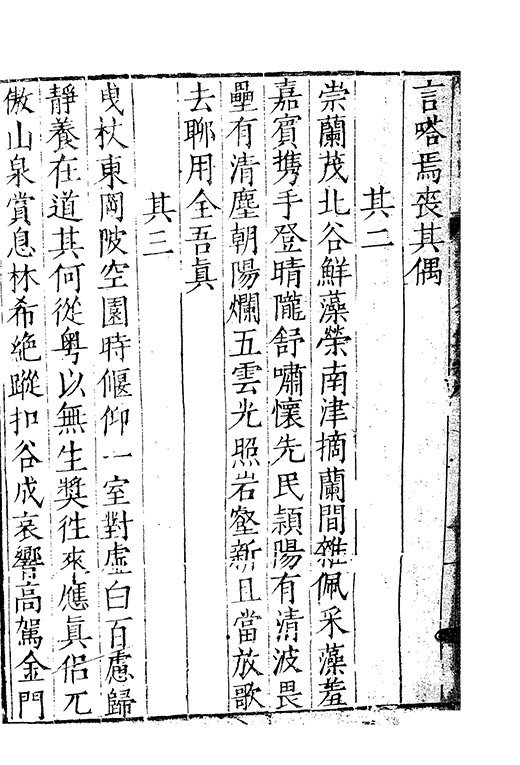 言嗒焉喪其偶
其二
崇蘭茂北谷鮮藻榮南津摘蘭間雜佩采藻羞
嘉賓携手登晴隴舒嘯懷先民頴陽有清波畏
壘有清塵朝陽爛五雲光照岩壑新且當放歌
去聊用全吾眞
其三
曵杖東岡陂空園時偃仰一室對虛白百慮歸
靜養在道其何從粤以無生奬徃來應眞侣兀
傲山泉賞息林希絶蹤扣谷成哀響高駕金門